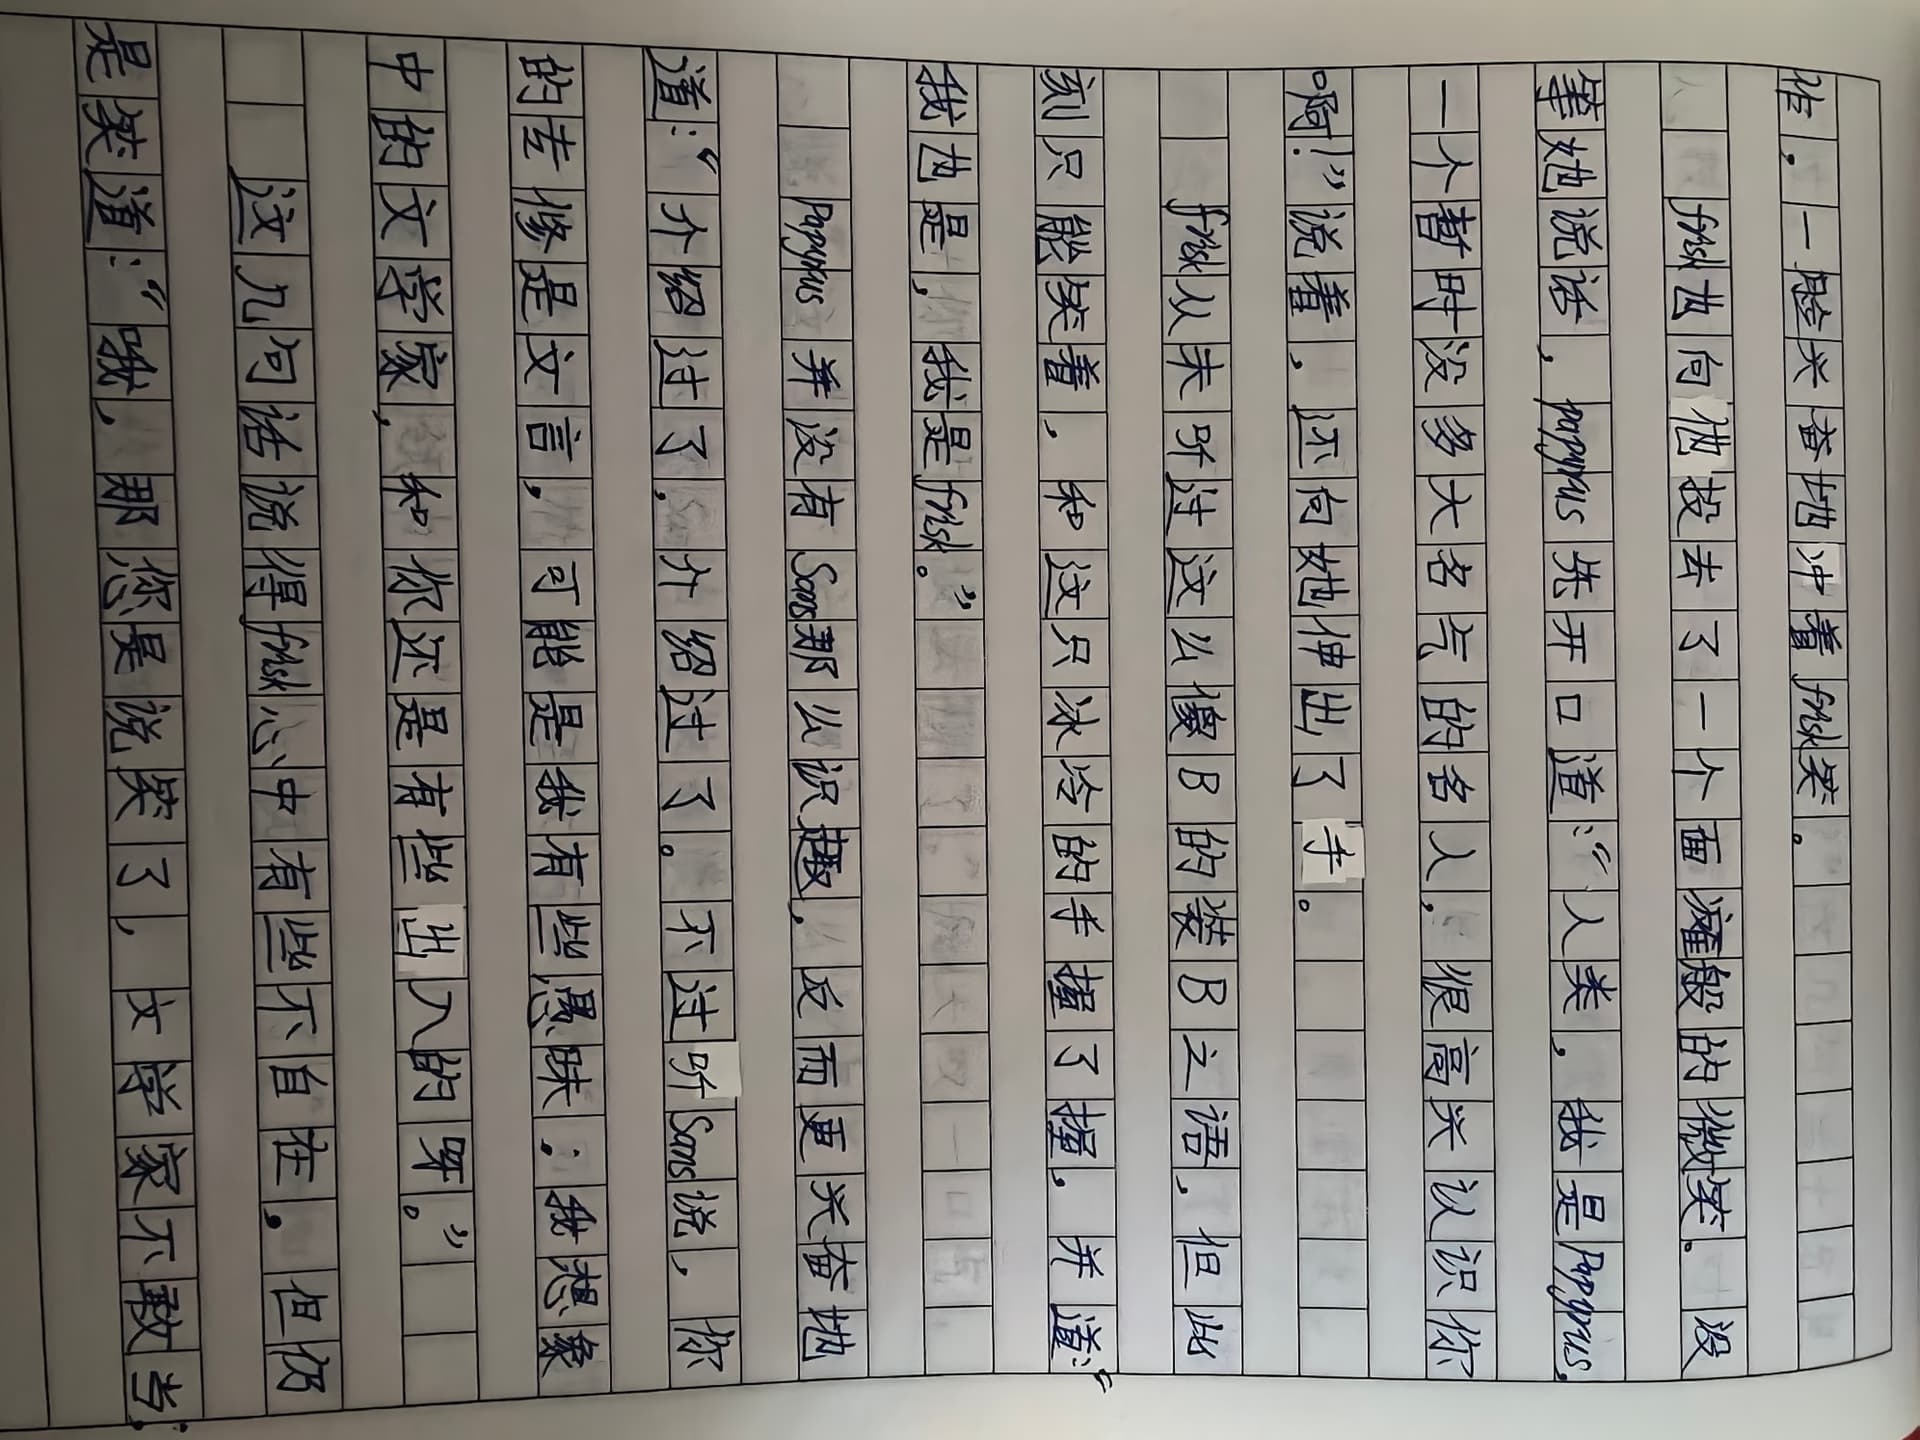 作，一脸兴奋地冲着frisk笑。
frisk也向他投去了一个面瘫般的微笑。没
等她说话，papyrus先开口道：“人类，我是Papyrus，
一个暂时没多大名气的名人，很高兴认识你
啊！”说着，还向她伸出了手。
frisk从未听过这么傻B的装B之语，但此
刻只能笑着，和这只冰冷的手握了握，并道：“
我也是，我是frisk。”
Papyrus并没有Sans那么识趣，反而更兴奋地
道：“介绍过了，介绍过了。不过听Sans说，你
的专修是文言，可能是我有些愚昧：我想象
中的文学家，和你还是有些出入的呀。”
这几句话说得frisk心中有些不自在，但仍
是笑道：“哦，那您是说笑了，文学家不敢当；